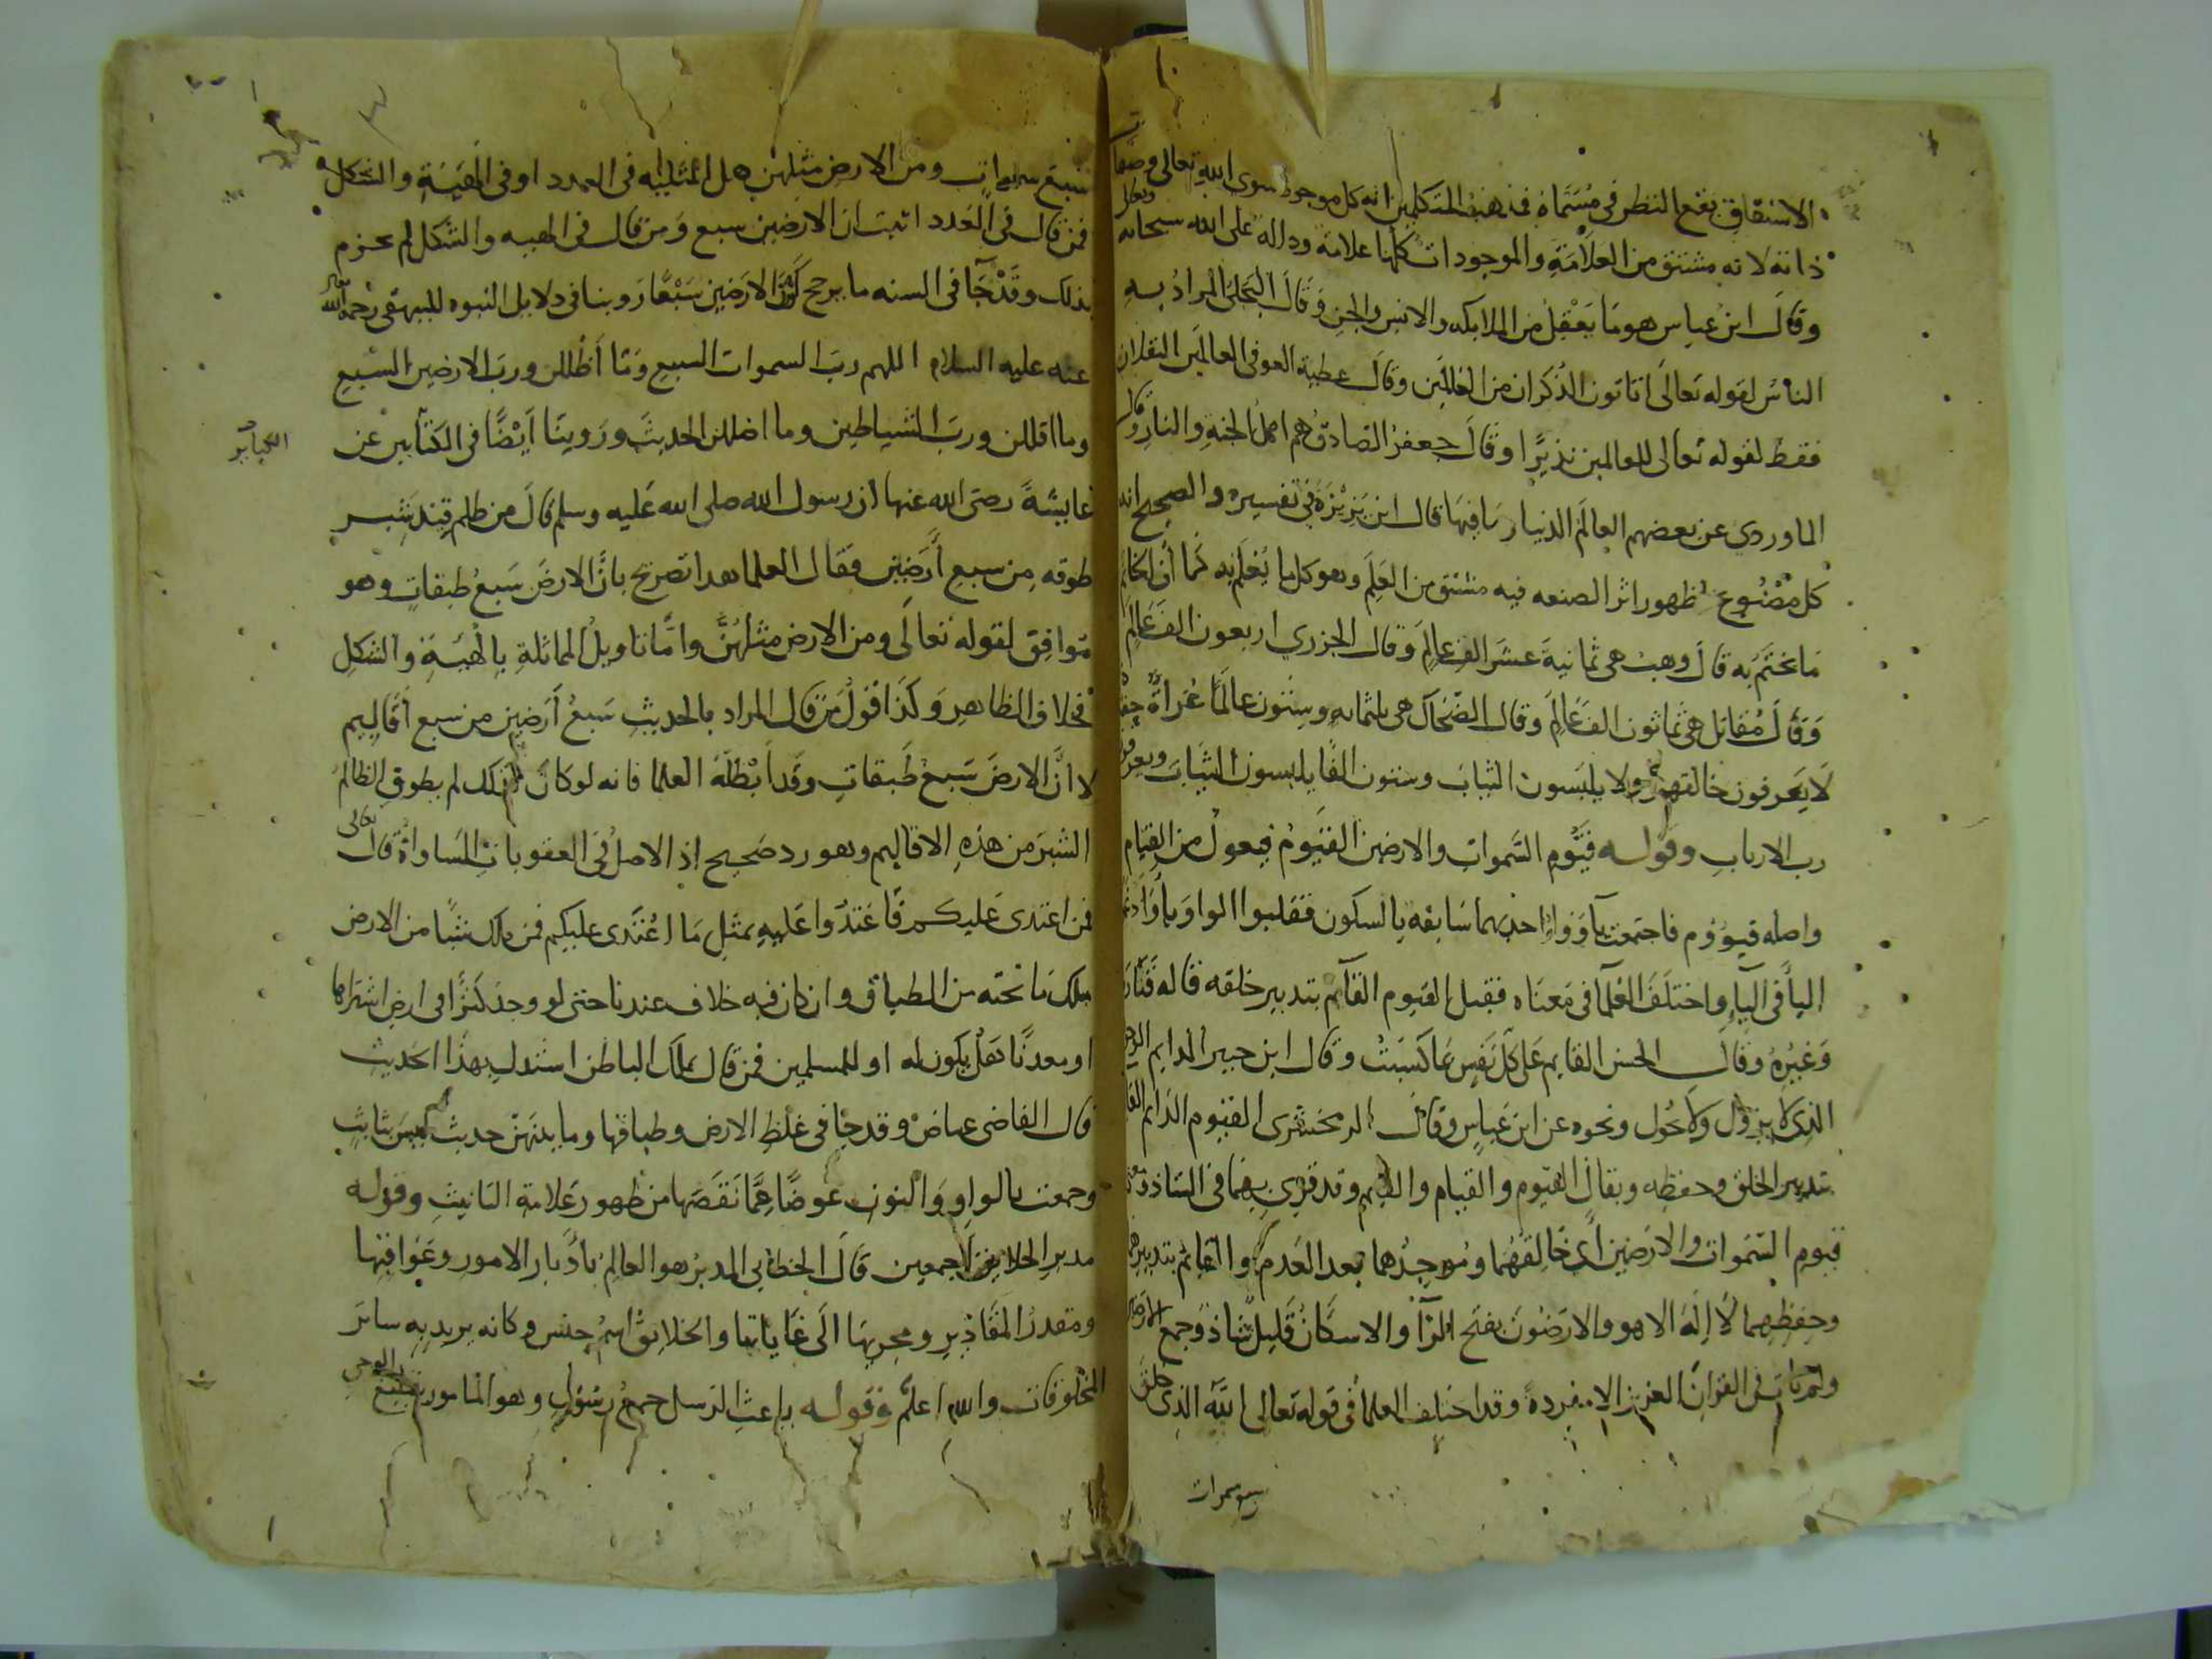 الاشتقاق يقع النظر في مسماه فمذهب المتكلمين انه كل موجود سوى الله تعالى وصفات
ذاته لانه مشتق من العلامة والموجودات كلها علامة ودالة على الله سبحانه وتعالى
وقال ابن عباس هو ما يعقل من الملايكه والانس والجن وقال البجلي المراد به
الناس لقوله تعالى اتاتون الذكران من العالمين وقال عطية العوفي العالمين الثقلان
فقط لقوله تعالى للعالمين نذيرا وقال جعفر الصادق هم اهل الجنة والنار وقال
الماوردي عن بعضهم العالم الدنيا وما فيها قال ابن بزيزة في تفسيره والصحيح انه
كل مصنوع لظهور اثر الصنعه فيه مشتق من العلم وهو كل ما يعلم به كما ان الخاتم
ما يختم به قال وهب هي ثمانية عشر الف عالم وقال الجزري اربعون الف عالم
وقال مقاتل هي ثمانون الف عالم وقال الضحاك هي ثلثمايه وستون عالما عراة حفاة
لا يعرفون خالقهم ولا يلبسون الثياب وستون الفا يلبسون الثياب ويعرفون
رب الارباب وقوله قيوم السموات والارضين القيوم فيعول من القيام
واصله قيووم فاجتمعت يا وواو احديهما سابقة بالسكون فقلبوا الواو يا وادغموا
اليا في اليا واختلف العلما في معناه فقيل القيوم القائم بتدبير خلقه قاله قتادة
وغيره وقال الحسن القايم على كل نفس بما كسبت وقال ابن جبير الدايم الوجود
الذي لا يزول ولا يحول ونحوه عن ابن عباس وقال الزمخشري القيوم الدايم القيام
بتدبير الخلق وحفظه ويقال القيوم والقيام والقيم وقد قري بهما في الشاذ
قيوم السموات والارضين اي خالقهما وموجدهما بعد العدم والقائم بتدبيرهما
وحفظهما لا اله الا هو والارضون بفتح الرا والاسكان قليل شاذ وجمع الارض
ولم يات في القران العزيز الا مفردة وقد اختلف العلما في قوله تعالى الله الذي خلق
سبع سموات
سبع سموات ومن الارض مثلهن هل المثليه في العدد او في الهيئة والشكل
فمن قال في العدد اثبت ان الارضين سبع ومن قال في الهييه والشكل لم يجزم
بذلك وقد جا في السنه ما يرجح كون الارضين سبعا روينا في دلايل النبوه للبيهقي رحمه الله تعالى
عنه عليه السلام اللهم رب السموات السبع وما اظللن ورب الارضين السبع
وما اقللن ورب الشياطين وما اضللن الحديث وروينا ايضا في الكتابين عن
الكتابين
عايشة رضي الله عنها ان رسول الله صلى الله عليه وسلم قال من ظلم قيد شبر
طوقه من سبع ارضين فقال العلما هذا تصريح بان الارض سبع طبقات وهو
موافق لقوله تعالى ومن الارض مثلهن واما تاويل المماثلة بالهيئة والشكل
فخلاف الظاهر وكذا قول من قال المراد بالحديث سبع ارضين من سبع اقاليم
لا ان الارض سبع طبقات وقد ابطله العلما فانه لو كان كذلك لم يطوق الظالم
الشبر من هذه الاقاليم وهو رد صحيح اذ الاصل في العقوبات المساواة قال تعالى
فمن اعتدى عليكم فاعتدوا عليه بمثل ما اعتدى عليكم فمن ملك شيا من الارض
ملك ما تحته من الطباق وان كان فيه خلاف عندنا حتى لو وجد كنزا في ارض اشتراها
او معدنا هل يكون له او للمسلمين فمن قال يملك الباطن استدل بهذا الحديث
قال القاضي عياض وقد جا في غلظ الارض وطباقها وما بينهن حديث ليس بثابت
وجمعت بالواو والنون عوضا عما نقصها من ظهور علامة التانيث وقوله
مدبر الخلايق اجمعين قال الخطابي المدبر هو العالم بادبار الامور وعواقبها
ومقدر المقادير ومجريها الى غاياتها والخلايق اسم جنس وكانه يريد به ساير
المخلوقات والله اعلم وقوله باعث الرسل جمع رسول وهو المامور بتبليغ الوحي